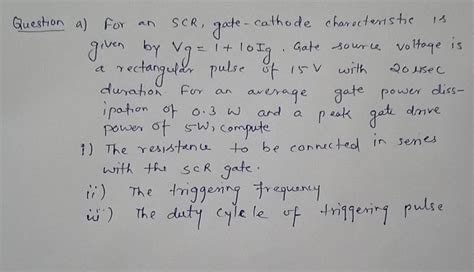 Question a) For an SCR, gate-cathode characteristic is
given by Vg = 1 + 10Ig. Gate source voltage is
a rectangular pulse of 15 V with 20 μsec
duration For an average gate power diss-
ipation of 0.3 W and a peak gate drive
power of 5W, compute
i) The resistance to be connected in series
with the SCR gate.
ii) The triggering frequency
iii) The duty cylcle of triggering pulse